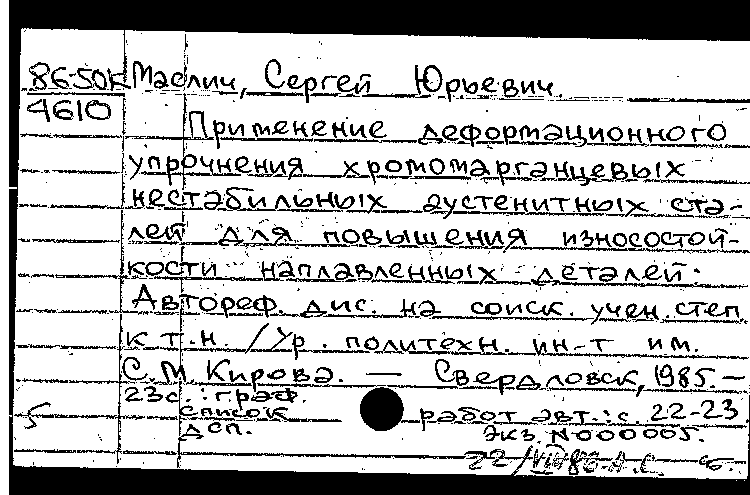 86-50к Маслич, Сергей Юрьевич.
4610
Применение деформационного
упрочнения хромомарганцевых
нестабильных аустенитных ста-
лей для повышения износостой-
кости наплавленных деталей.
Автореф. дис. на соиск. учен. степ.
к.т.н. /Ур. политехн. ин-т им.
С.М. Кирова. — Свердловск, 1985. —
23с.: граф.
5 список работ авт.: с. 22-23
дсп. Экз. N000005.
22/VIII86-А.С.